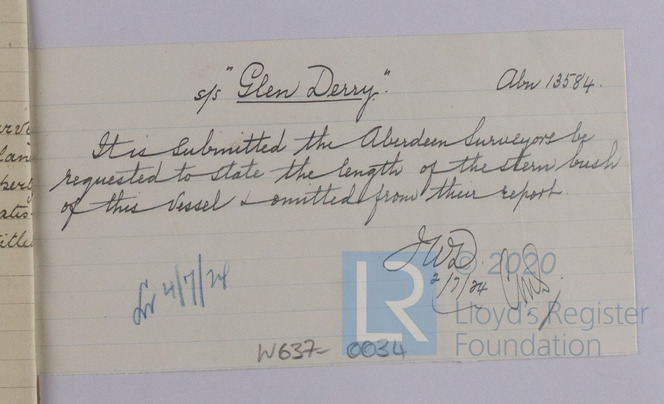 s/s "Glen Derry." Abn 13584.
It is submitted the Aberdeen Surveyors be
requested to state the length of the stern bush
of this vessel & omitted from their report.
JWD.
2/7/24
4/7/24
W637-0034
LR
© 2020
Lloyd's Register
Foundation